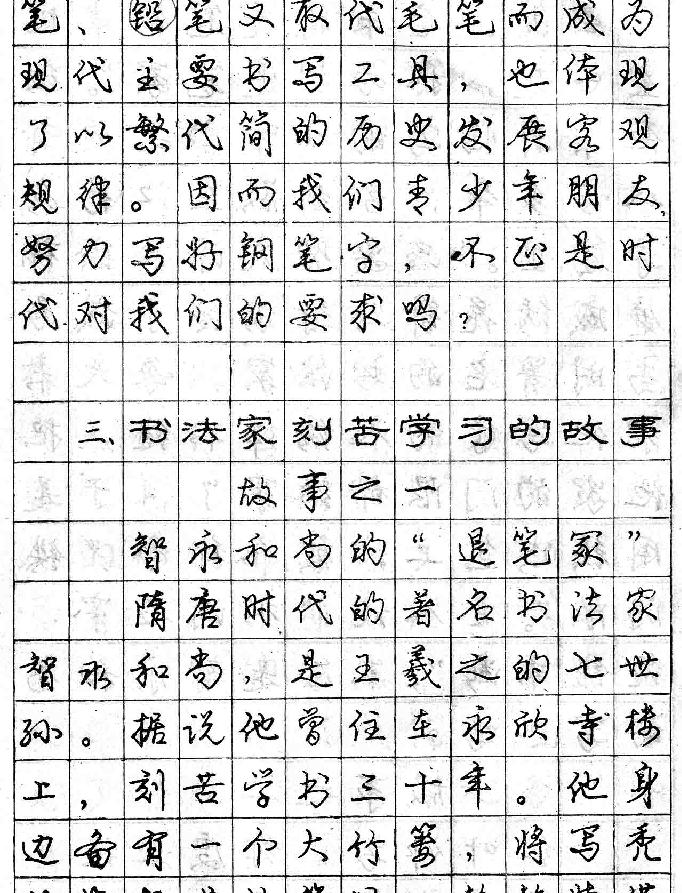 笔、铅笔又取代毛笔而成为
现代主要书写工具，也体现
了以繁代简的历史发展客观
规律。因而我们青少年朋友，
努力写好钢笔字，不正是时
代对我们的要求吗？
三、书法家刻苦学习的故事
故事之一
智永和尚的“退笔冢”
隋唐时代的著名书法家
智永和尚，是王羲之的七世
孙。据说他曾住在永欣寺楼
上，刻苦学书三十年。他身
边备有一个大竹篓，将写秃